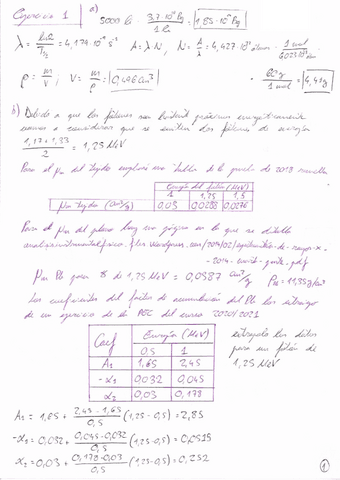 Ejercicio 1 a) 5000 Ci · 3,7·10¹⁰ Bq / 1 Ci = 1,85·10¹⁴ Bq
λ = ln2 / = 4,179·10⁻⁹ s⁻¹ A = λ·N, N = A/λ = 4,427·10²² átomos · 1 mol / 6,023·10²³
ρ = m/V ; V = m/ρ = 0,496 cm³ · 60 g / 1 mol = 4,41 g
b) Debido a que los fotones son bastante próximos energéticamente
vamos a considerar que se emiten los fotones de energía
1,17 + 1,33 / 2 = 1,25 MeV
Para el μm del tejido emplearé una tabla de la prueba de 2018
Energía del fotón (MeV)
1 1,25 1,5
μm tejido (cm²/g) 0,03 0,0288 0,0276
Para el μm del plomo hay una página en la que se detalla
-2014-
μm Pb para γ de 1,25 MeV = 0,0587 cm²/g ρPb = 11,35 g/cm³
Los coeficientes del factor de acumulación del Pb los extraigo
de un ejercicio de la PEC del curso 2020/2021
Coef Energía (MeV)
0,5 1
A1 1,65 2,45
-α1 0,032 0,045
α2 0,03 0,178
extrapolo los datos
para un fotón de
1,25 MeV
A1 = 1,65 + 2,45 - 1,65 / 0,5 (1,25 - 0,5) = 2,85
-α1 = 0,032 + 0,045 - 0,032 / 0,5 (1,25 - 0,5) = 0,0515
α2 = 0,03 + 0,178 - 0,03 / 0,5 (1,25 - 0,5) = 0,252
1